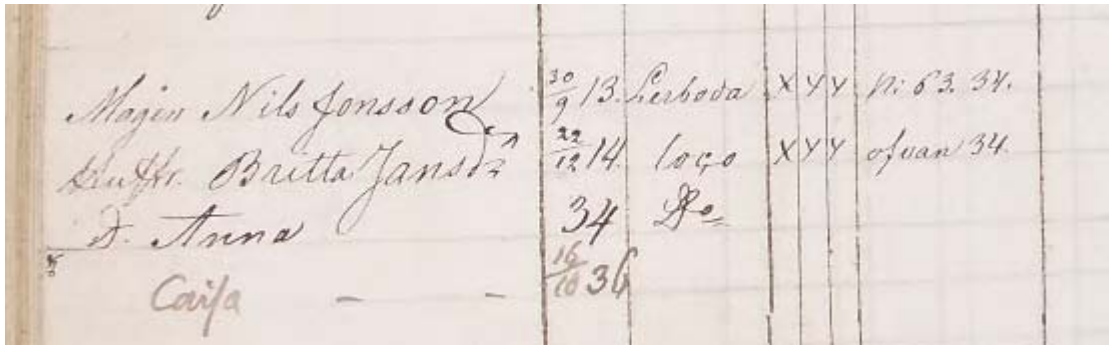 Mågen Nils Jonsson 30/9 13. Lerboda X Y Y N: 63. 34.
Hustr. Britta Jansdr 22/12 14. loco X Y Y ofvan 34.
D. Anna 34 Do
Cajsa - - 16/10 36